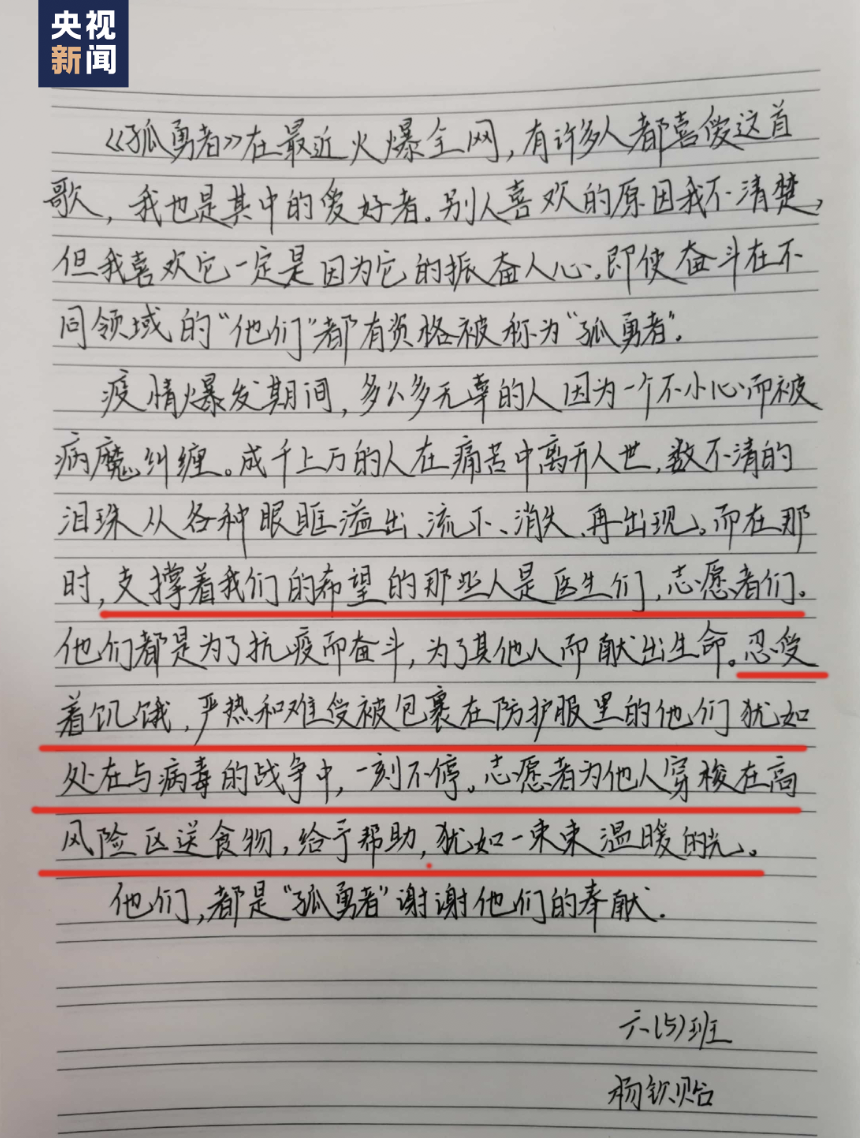 央视
新闻
《孤勇者》在最近火爆全网，有许多人都喜爱这首
歌，我也是其中的爱好者。别人喜欢的原因我不清楚，
但我喜欢它一定是因为它的振奋人心。即使奋斗在不
同领域的“他们”都有资格被称为“孤勇者”。
疫情爆发期间，多么多无辜的人因为一个不小心而被
病魔纠缠。成千上万的人在痛苦中离开人世，数不清的
泪珠从各种眼眶溢出、流下、消失、再出现。而在那
时，支撑着我们的希望的那些人是医生们，志愿者们。
他们都是为了抗疫而奋斗，为了其他人而献出生命。忍受
着饥饿，严热和难受被包裹在防护服里的他们犹如
处在与病毒的战争中，一刻不停。志愿者为他人穿梭在高
风险区送食物，给予帮助，犹如一束束温暖的光。
他们，都是“孤勇者”谢谢他们的奉献.
六（5）班
杨钦贻